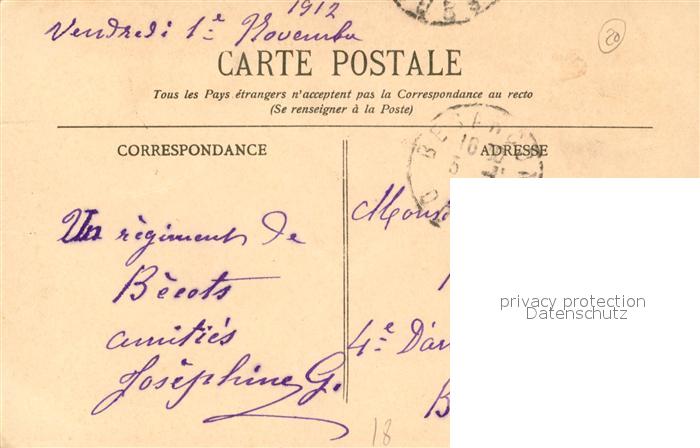 1912
Vendredi 1e Novembre
20
CARTE POSTALE
Tous les Pays étrangers n'acceptent pas la Correspondance au recto
(Se renseigner à la Poste)
CORRESPONDANCE
ADRESSE
Un règiment de
Bècots
amitiés
Josèphine G.
Mons
4e D'ar
B
18
privacy protection
Datenschutz